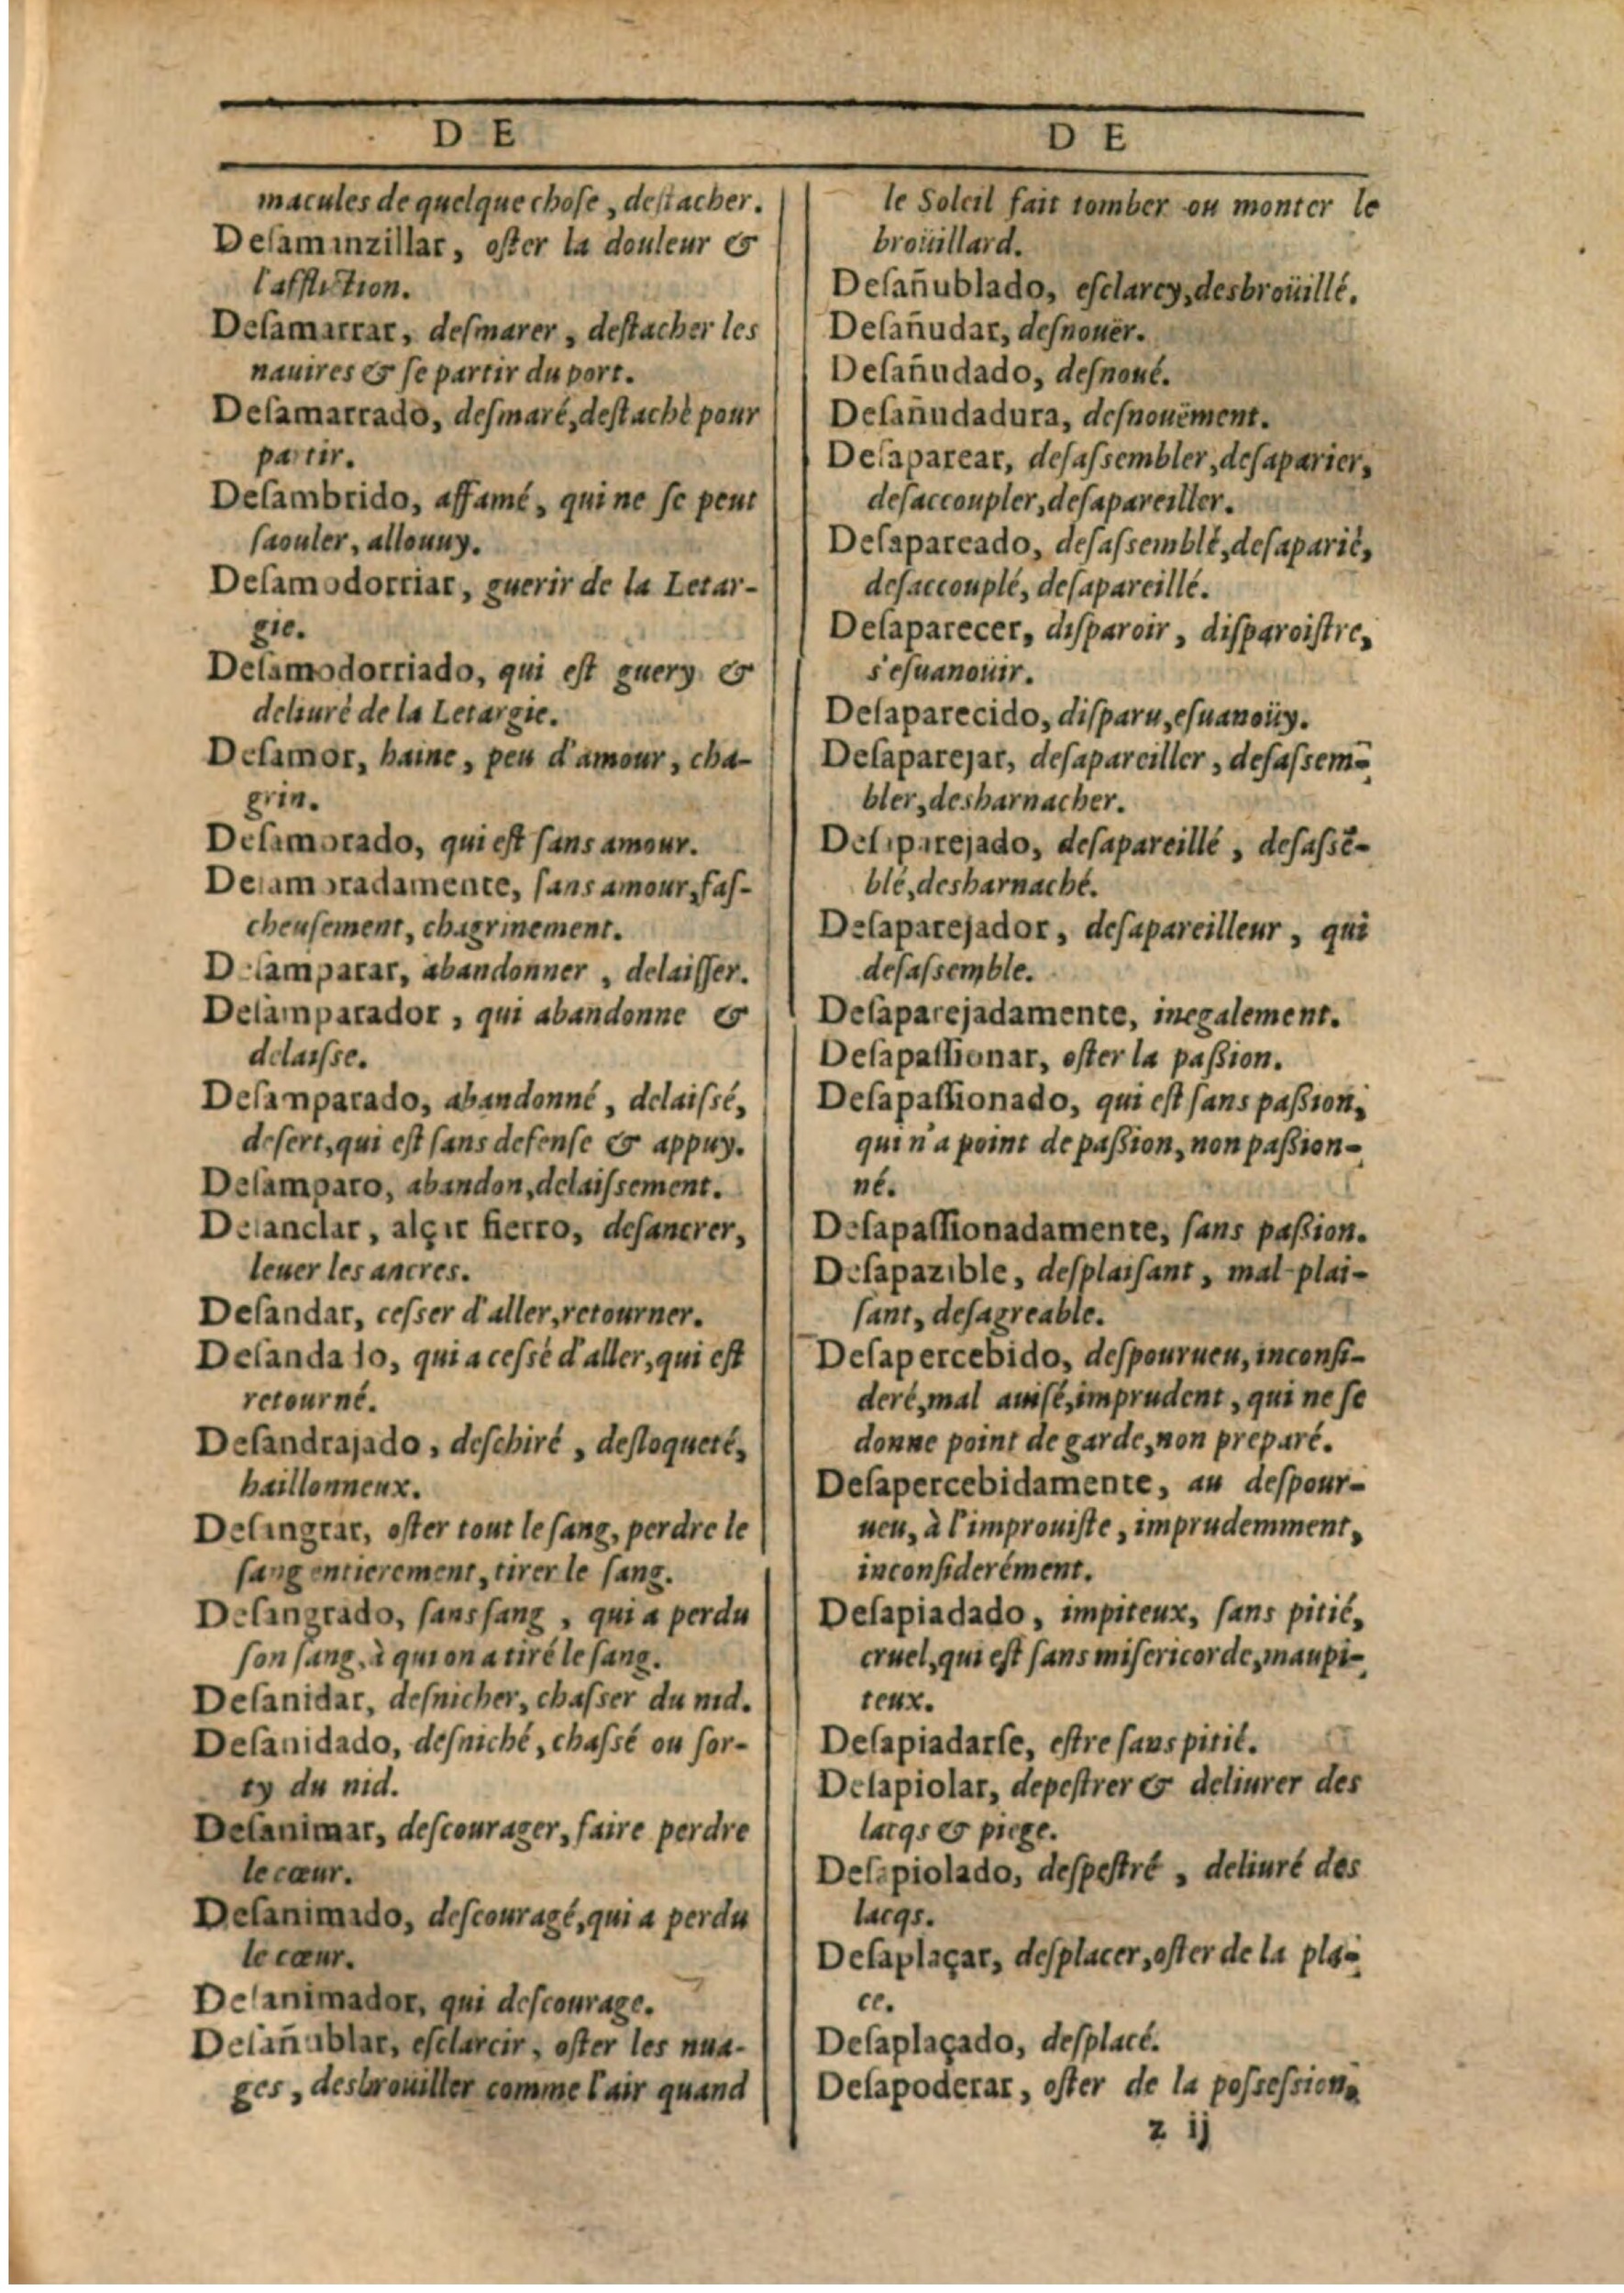 D E
macules de quelque chose, destacher.
Desaminzillar, oster la douleur &
l'affliction.
Desamarrar, desmarer, destacher les
nauires & se partir du port.
Desamarrado, desmaré, destaché pour
partir.
Desambrido, affamé, qui ne se peut
saouler, allouuy.
Desamodorriar, guerir de la Letar-
gie.
Desamodorriado, qui est guery &
deliuré de la Letargie.
Desamor, haine, peu d'amour, cha-
grin.
Desamorado, qui est sans amour.
Desamoradamente, sans amour, fas-
cheusement, chagrinement.
Desamparar, abandonner, delaisser.
Desamparador, qui abandonne &
delaisse.
Desamparado, abandonné, delaissé,
desert, qui est sans defense & appuy.
Desamparo, abandon, delaissement.
Desanclar, alçar fierro, desancrer,
leuer les ancres.
Desandar, cesser d'aller, retourner.
Desandado, qui a cessé d'aller, qui est
retourné.
Desandrajado, deschiré, desloqueté,
haillonneux.
Desangrar, oster tout le sang, perdre le
sang entierement, tirer le sang.
Desangrado, sans sang, qui a perdu
son sang, à qui on a tiré le sang.
Desanidar, desnicher, chasser du nid.
Desanidado, desniché, chassé ou sor-
ty du nid.
Desanimar, descourager, faire perdre
le cœur.
Desanimado, descouragé, qui a perdu
le cœur.
Desanimador, qui descourage.
Desañublar, esclarcir, oster les nua-
ges, desbrouiller comme l'air quand
D E
le Soleil fait tomber ou monter le
broüillard.
Desañublado, esclarcy, desbroüillé.
Desañudar, desnouër.
Desañudado, desnoué.
Desañudadura, desnouëment.
Desaparear, desassembler, desaparier,
desaccoupler, desapareiller.
Desapareado, desassemblé, desaparié,
desaccouplé, desapareillé.
Desaparecer, disparoir, disparoistre,
s'esuanoüir.
Desaparecido, disparu, esuanoüy.
Desaparejar, desapareiller, desassem-
bler, desharnacher.
Desaparejado, desapareillé, desassē-
blé, desharnaché.
Desaparejador, desapareilleur, qui
desassemble.
Desaparejadamente, inegalement.
Desapassionar, oster la passion.
Desapassionado, qui est sans passion,
qui n'a point de passion, non passion-
né.
Desapassionadamente, sans passion.
Desapazible, desplaisant, mal-plai-
sant, desagreable.
Desapercebido, despourueu, inconsi-
deré, mal auisé, imprudent, qui ne se
donne point de garde, non preparé.
Desapercebidamente, au despour-
ueu, à l'improuiste, imprudemment,
inconsiderément.
Desapiadado, impiteux, sans pitié,
cruel, qui est sans misericorde, maupi-
teux.
Desapiadarse, estre sans pitié.
Desapiolar, depestrer & deliurer des
lacqs & piege.
Desapiolado, despestré, deliuré des
lacqs.
Desaplaçar, desplacer, oster de la pla-
ce.
Desaplaçado, desplacé.
Desapoderar, oster de la possession,
z ij